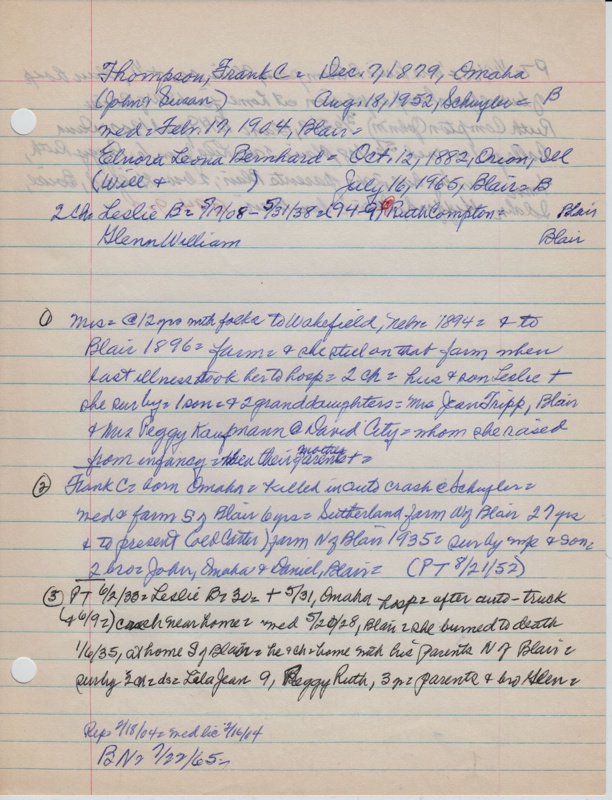 Thompson, Frank C = Dec. 7, 1879, = Omaha
(John & Susan) Aug. 18, 1952, Schuyler = B
med = Febr. 17, 1904, Blair =
Elnora Leona Bernhard = Oct. 12, 1882, Orion, Ill
(Will & ) July 16, 1965, Blair = B
2 Ch = Leslie B = 5/7/08 - 5/31/38 = (94-9) Ruth Compton = Blair
Glenn William Blair
① Mrs = @ 12 yrs with folks to Wakefield, Nebr. 1894 = & to
Blair 1896 = farm = & she still on that farm when
last illness took her to hosp = 2 ch = hus & son Leslie +
she sur by = 1 son = & 2 granddaughters = Mrs Jean Tripp, Blair
& Mrs Peggy Kaufmann @ David City = whom she raised
from infancy = their mother + =
② Frank C = born Omaha = killed in auto crash @ Schuyler =
med & farm S of Blair 6 yrs = Sutherland farm W of Blair 27 yrs
& to present (old Carter) farm N of Blair 1935 = sur by wife & son =
2 bro = John, Omaha & Daniel, Blair = (PT 8/21/52)
③ PT 6/2/38 = Leslie B = 30 = + 5/31, Omaha hosp = after auto-truck
(& 6/9 =) crash near home = med 5/20/28, Blair = she burned to death
1/6/35, at home S of Blair = he & ch = home with his parents N of Blair =
sur by 2 ch = ds = Lila Jean 9, Peggy Ruth, 3 = parents & bro Glen =
Rep = 2/18/04 = med lic 2/16/04
BN = 7/22/65 =